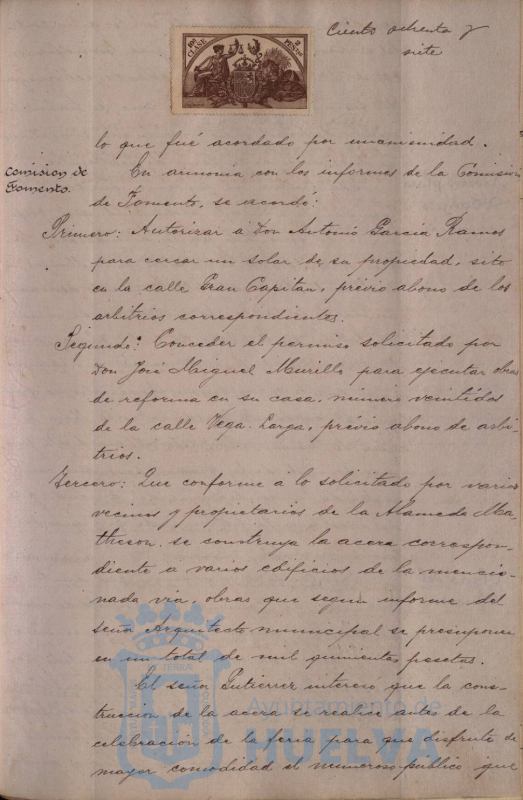 Ciento ochenta y
siete
10ª CLASE
2 PESETAS
lo que fué acordado por unanimidad.
Comision de
Fomento.
En armonia con los informes de la Comision
de Fomento, se acordó:
Primero: Autorizar á Don Antonio Garcia Ramos
para cercar un solar de su propiedad, sito
en la calle Gran Capitan, prévio abono de los
arbitrios correspondientes.
Segundo: Conceder el permiso solicitado por
Don José Miguel Murillo para ejecutar obras
de reforma en su casa, número veintidos
de la calle Vega-Larga, prévio abono de arbi-
trios.
Tercero: Que conforme á lo solicitado por varios
vecinos y propietarios de la Alameda Ma-
theson, se construya la acera correspon-
diente a varios edificios de la mencio-
nada via, obras que segun informe del
señor Arquitecto municipal se presuponen
en un total de mil quinientas pesetas.
El señor Gutierrez interesó que la cons-
truccion de la acera se realice antes de la
celebracion de la feria para que disfrute de
mayor comodidad el numeroso público que
Ayuntamiento de
HUELVA